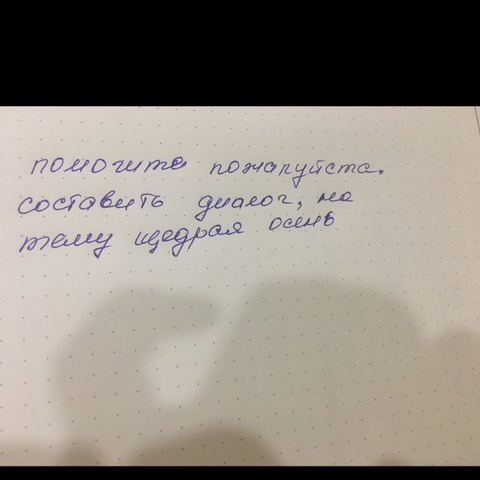 помогита пожалуйста.
составить диалог, на
тему щедрая осень